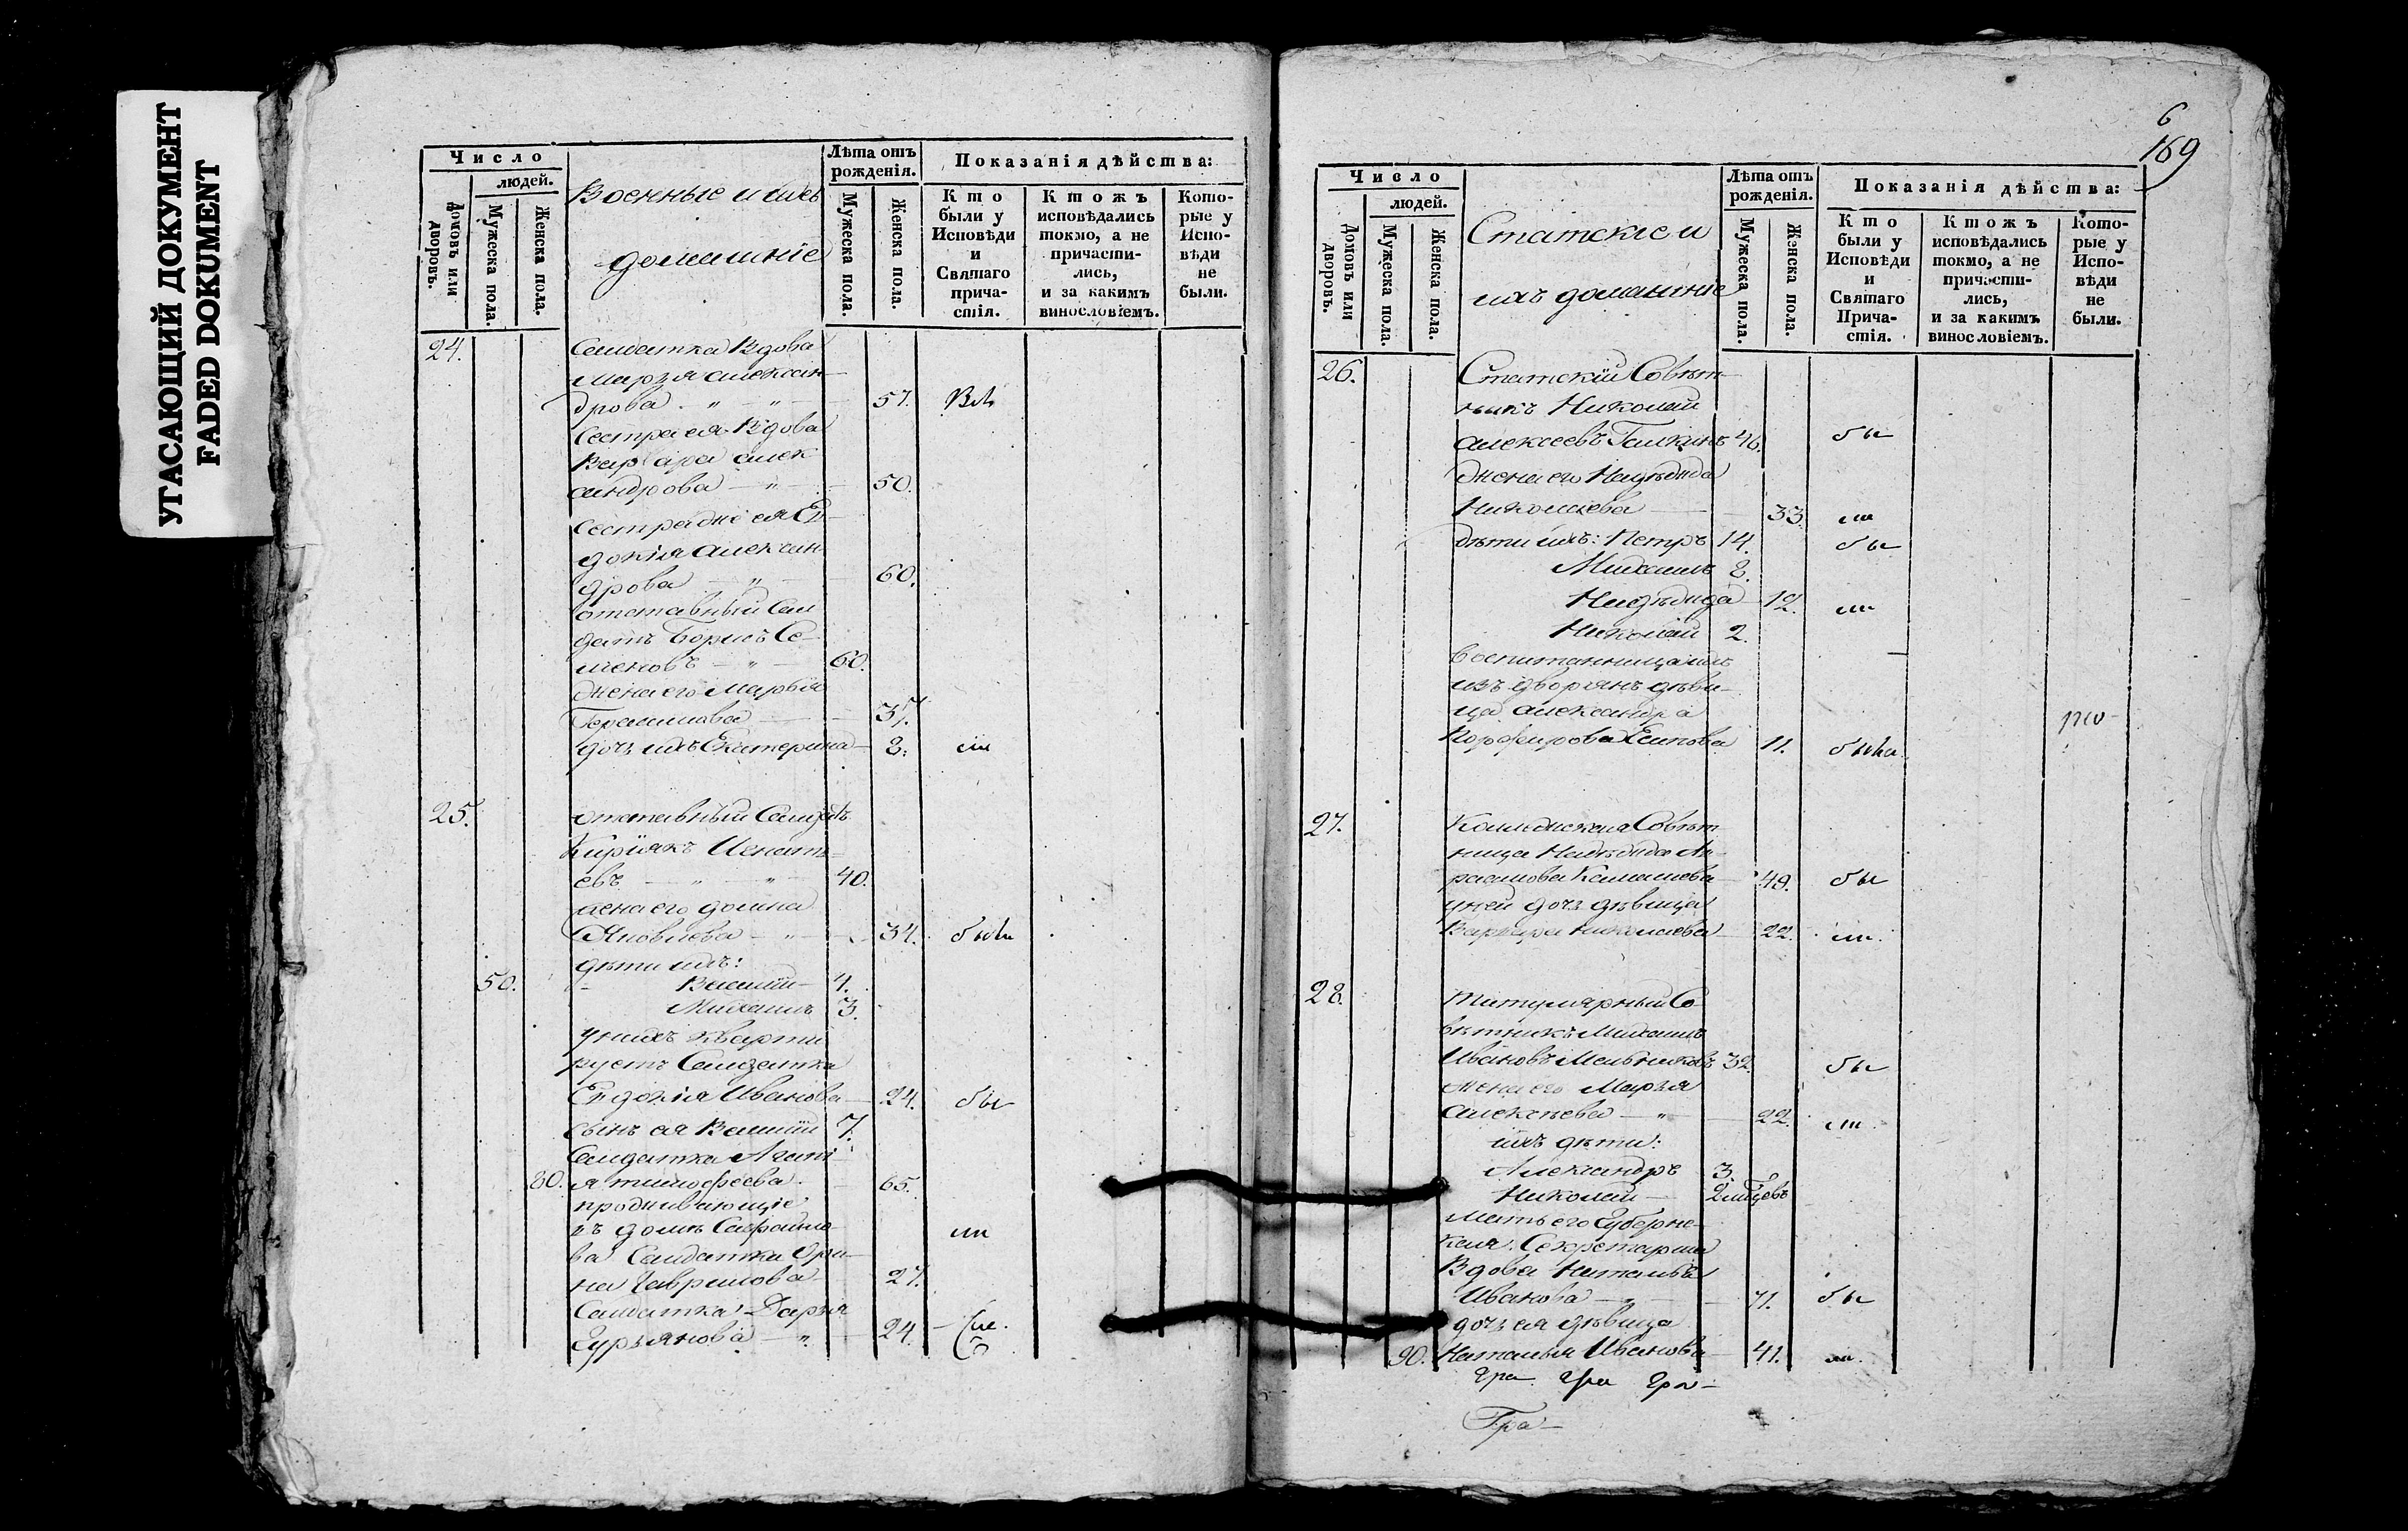 УГАСАЮЩИЙ ДОКУМЕНТ
FADED DOKUMENT
Число
людей.
Домовъ или дворовъ.
Мужеска пола.
Женска пола.
Военные и ихъ
домашніе
Лѣта отъ рожденія.
Мужеска пола.
Женска пола.
Показанія дѣйства:
Кто были у Исповѣди и Святаго причастія.
Ктожъ исповѣдались токмо, а не причастились, и за какимъ винословіемъ.
Которые у Исповѣди не были.
24. Салдатка Вдова
Марья Алексан-
дрова 57.
Сестра ея Вдова
Варвара Алек
андрова 50.
Сестра же ея Ев-
докія Алексан
дрова 60.
отставный Сал
датъ Борисъ Се-
меновъ 60.
жена его Марѳа
Герасимова 37.
дочь ихъ Екатерина 8.
25. отставный Салдатъ
Кирiякъ Игнать-
евъ 40.
жена его домна
Яковлева 34. были
дѣти ихъ:
50. Василій 4.
Михаилъ 3.
у нихъ кварти
руетъ Салдатка
Евдокія Иванова 24. бы
сынъ ея Василій 7.
Салдатка Агаѳі
80. я тимофеева 65.
проживающіе
въ домѣ
ва Салдатка Ори-
на Гаврилова 27.
Салдатка Дарья
Гурьянова 24.
6
169
Число
людей.
Домовъ или дворовъ.
Мужеска пола.
Женска пола.
Статскіе и
ихъ домашніе
Лѣта отъ рожденія.
Мужеска пола.
Женска пола.
Показанія дѣйства:
Кто были у Исповѣди и Святаго Причастія.
Ктожъ исповѣдались токмо, а не причастились, и за какимъ винословіемъ.
Которые у Исповѣди не были.
26. Статскій Совѣт-
никъ Николай
Алексеевъ Галкинъ 46. бы
жена его Надѣжда
Николаева 33. ли
дѣти ихъ: Петръ 14. бы
Михаилъ 8.
Надѣжда 12. ли
Николай 2.
воспитанница ихъ
изъ дворянъ дѣви-
ца Александра
Порфирова Есипова 11. была
27. Коллежская Совѣт-
ница Надѣжда Ав-
раамова 49. бы
у ней дочь дѣвица
Варвара Николаева 22. ли.
28. Титулярный Со-
вѣтникъ Михаилъ
Ивановъ Мельниковъ 32. бы
жена его Марья
Алексѣева 22. ли
ихъ дѣти:
Александръ 3.
Николай 2 мѣсецовъ
Мать его Губернс-
кая Секретарша
Вдова Наталья
Иванова 71. бы
дочь ея дѣвица
90. Наталья Иванова 41. ли.
Гра Гра Гра-
Гра-